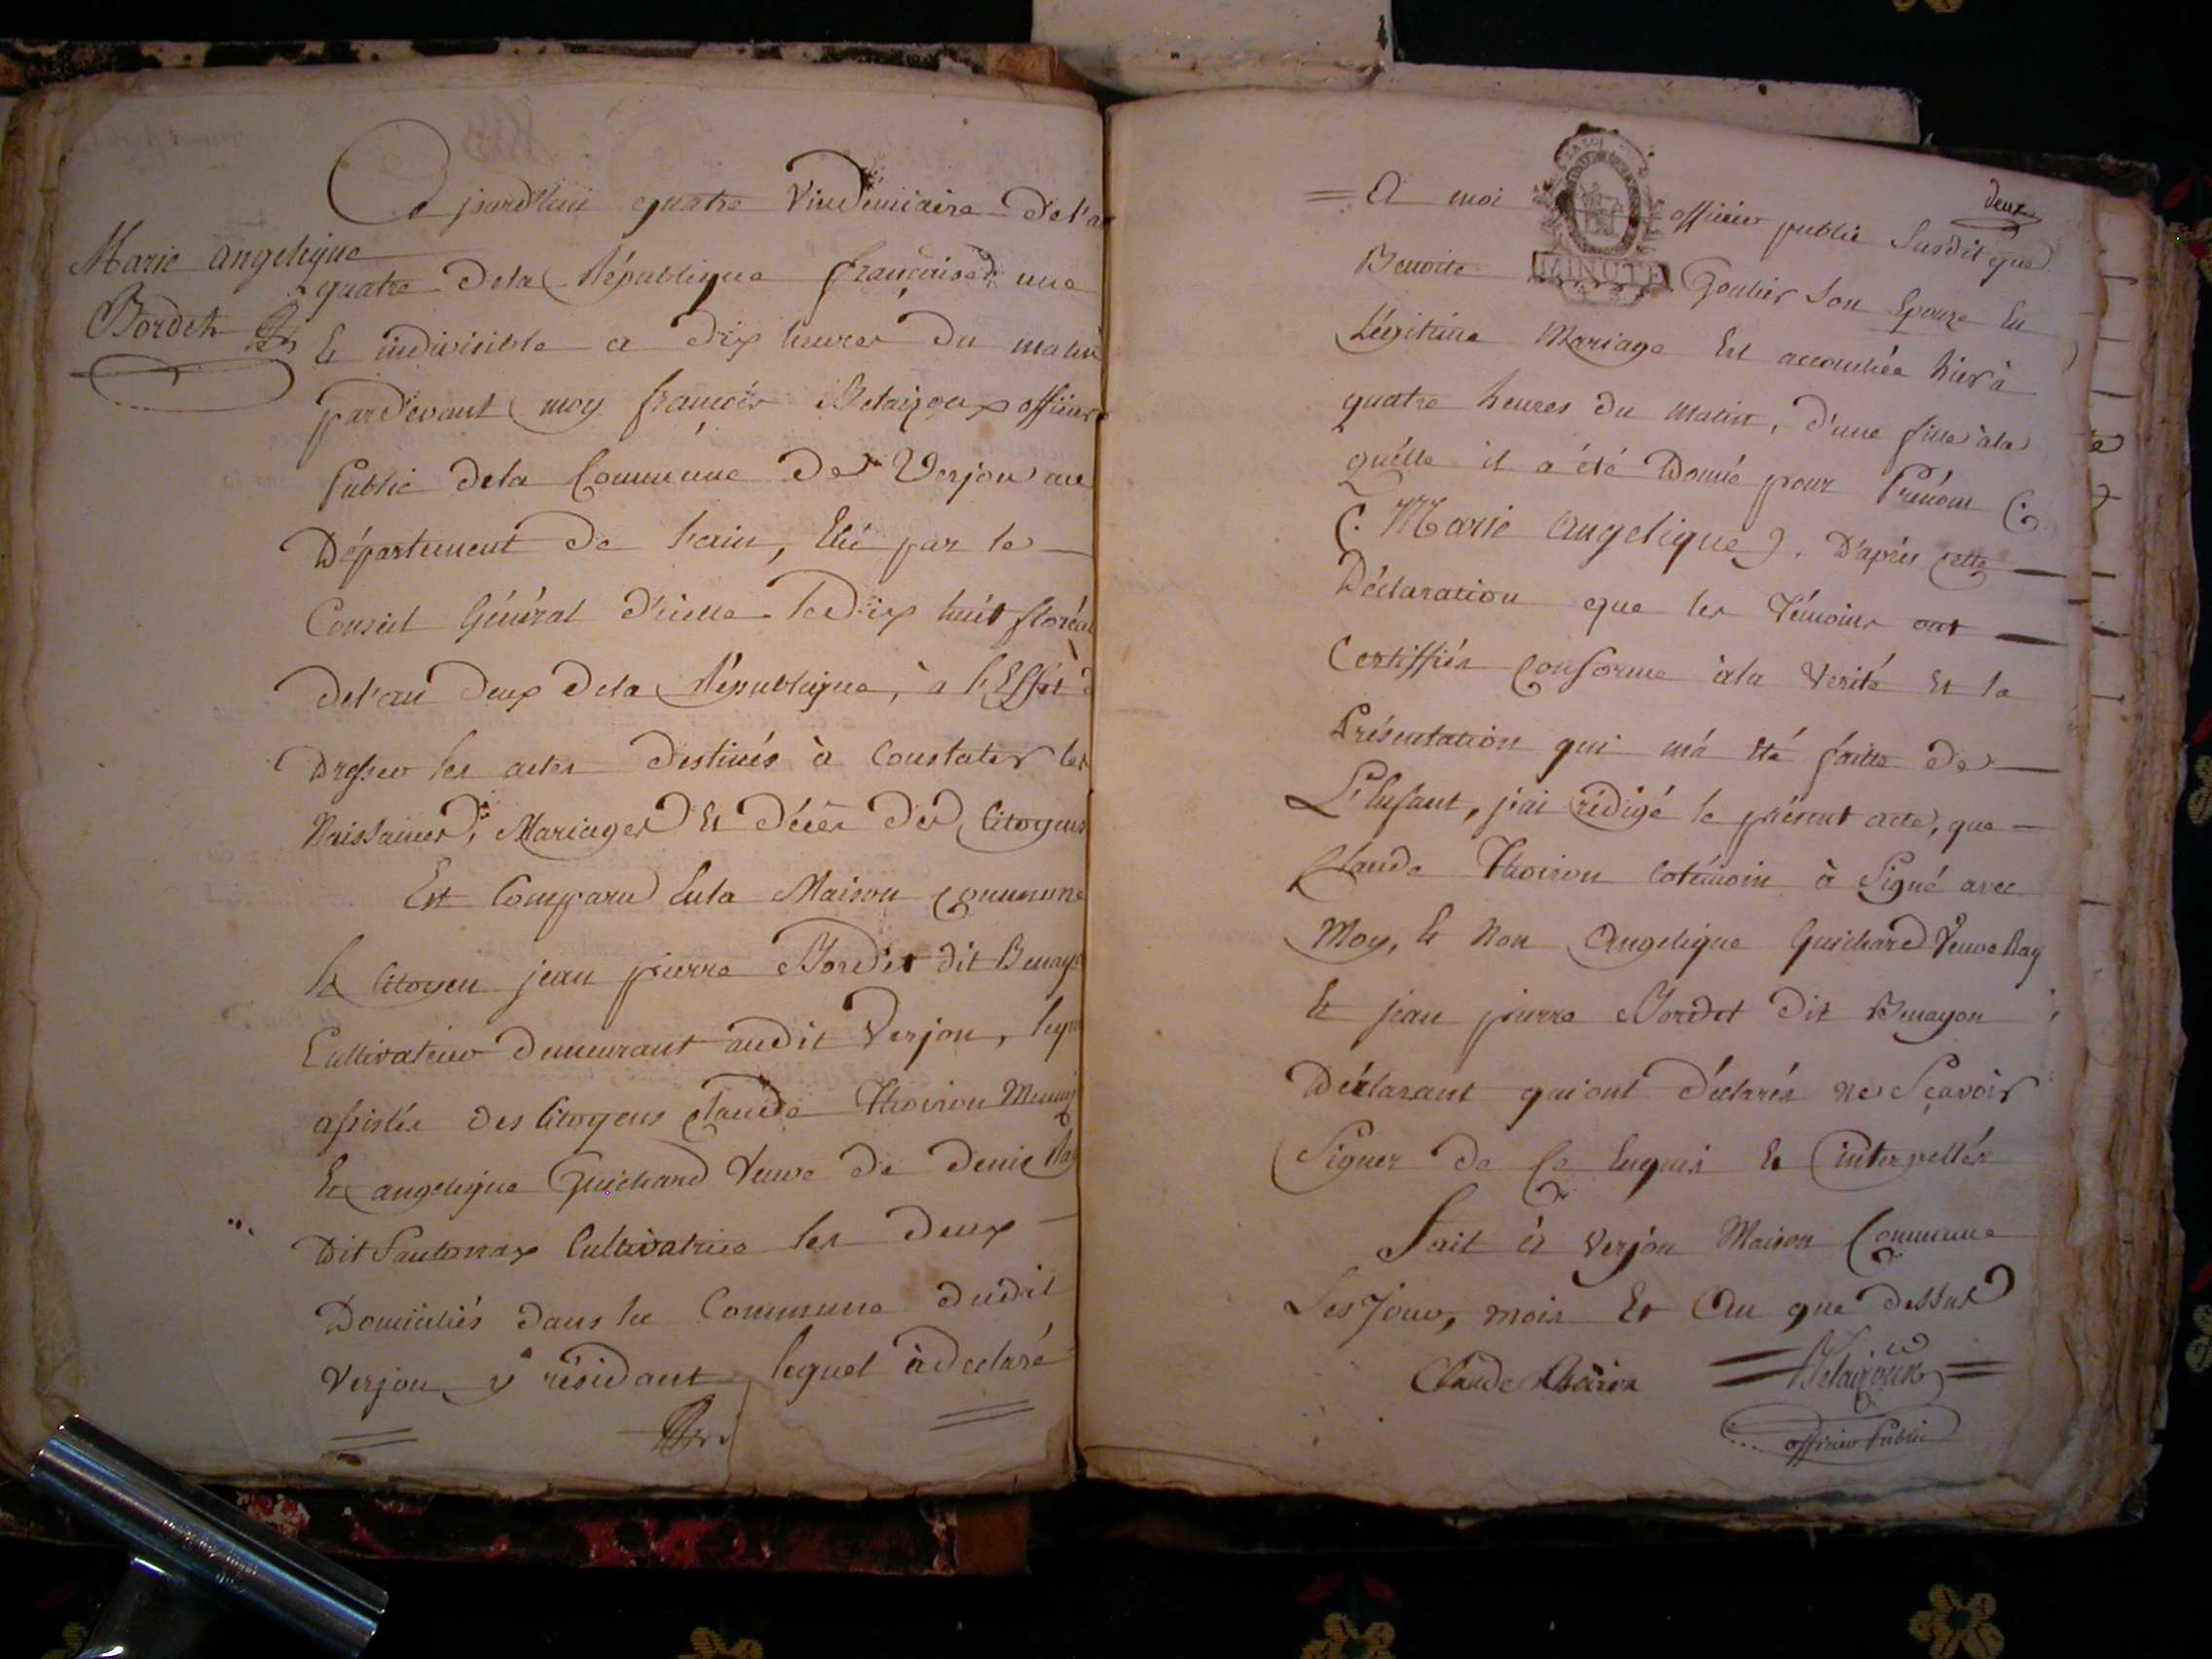 Marie angelique
Bordet
Ce jourd'hui quatre Vindemiaire de l'an
quatre de la République française une
Et indivisible a dix heures du matin
pardevant moy françois Betaizoux officier
Public de la Commune de Verjon au
Département de Lain, Elu par le
Conseil Général d'icelle le dix huit floréal
de l'an deux de la République, à l'Effet d
Dresser les actes destinés à Constater les
Naissances, Mariages Et décès des Citoyens
Est Comparu En la Maison Commune
le Citoyen jean pierre Bordet dit Benayon
Cultivateur demeurant audit Verjon, lequel
assistés des Citoyens Claude Thoiron
Et angelique Guichard Veuve de denis
Dit Santonax Cultivatrice les deux
Domiciliés dans la Commune dudit
Verjon y résidant lequel à declaré
deux
= A moi officier public Susdit que
MINUTE
Benoite Goulier Son Epouze En
Légitime Mariage Est accouchée hier à
quatre heures du matin, d'une fille à la
quélle il a été Donné pour Prénom
(: Marie Angelique). D'après cette
Déclaration que les Témoins ont
Certiffiés Conforme à la Verité Et la
Présentation qui m'à été faitte de
L'Enfant, j'ai rédigé le présent acte, que
Claude Thoiron Cotémoin à Signé avec
Moy, Et Non Angelique Guichard Veuve Ray
Et jean pierre Bordet Dit Benayon
Déclarant qui ont déclarés ne Sçavoir
Signer de Ce Enquis Et interpellés
Fait à Verjon Maison Commune
Les Jour, mois Et An que dessus
Claude Thoiron = Betaizoux =
officier Public